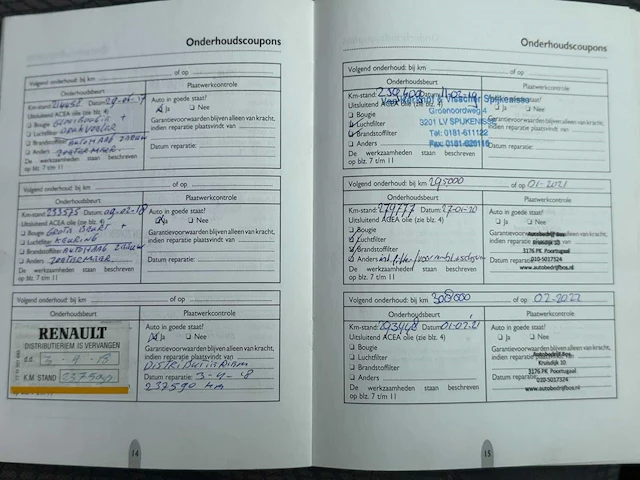 Onderhoudscoupons
Volgend onderhoud: bij km of op
Onderhoudsbeurt
Plaatwerkcontrole
Km-stand: Datum:
Uitsluitend ACEA olie (zie blz. 4)
Bougie
Luchtfilter
Brandstoffilter
Anders
De werkzaamheden staan beschreven
op blz. 7 t/m 11
Auto in goede staat?
Ja Nee
Garantievoorwaarden blijven alleen van kracht,
indien reparatie plaatsvindt van
Datum reparatie:
Volgend onderhoud: bij km of op
Onderhoudsbeurt
Plaatwerkcontrole
Km-stand: 233575 Datum: 09-02-18
Uitsluitend ACEA olie (zie blz. 4)
Bougie GROTE BEURT +
Luchtfilter KEURING
Brandstoffilter
Anders ZOETERMEER
De werkzaamheden staan beschreven
op blz. 7 t/m 11
Auto in goede staat?
Ja Nee
Garantievoorwaarden blijven alleen van kracht,
indien reparatie plaatsvindt van
Datum reparatie:
Volgend onderhoud: bij km of op
Onderhoudsbeurt
Plaatwerkcontrole
RENAULT
DISTRIBUTIERIEM IS VERVANGEN
3-4-18
K.M STAND 237590
op blz. 7 t/m 11
Auto in goede staat?
Ja Nee
Garantievoorwaarden blijven alleen van kracht,
indien reparatie plaatsvindt van
DISTRIBUTIERIEM
Datum reparatie: 3-4-'18
237590 km
14
Onderhoudscoupons
Volgend onderhoud: bij km of op
Onderhoudsbeurt
Plaatwerkcontrole
Km-stand:
Uitsluitend ACEA olie (zie blz. 4)
Bougie
Luchtfilter
Brandstoffilter
Anders
De werkzaamheden staan beschreven
op blz. 7 t/m 11
Auto in goede staat?
Visscher Spijkenisse
Groenoordweg 4
3201 LV SPIJKENISSE
Tel: 0181-611122
Garantievoorwaarden blijven alleen van kracht,
indien reparatie plaatsvindt van
Datum reparatie:
Volgend onderhoud: bij km 295000 of op 01-2021
Onderhoudsbeurt
Plaatwerkcontrole
Km-stand: 279777 Datum: 27-01-20
Uitsluitend ACEA olie (zie blz. 4)
Bougie
Luchtfilter
Brandstoffilter
Anders
De werkzaamheden staan beschreven
op blz. 7 t/m 11
Auto in goede staat?
Ja Nee
Garantievoorwaarden blijven alleen van kracht,
indien reparatie plaatsvindt van
Autobedrijf Bos
Kruisdijk 10
3176 PK Poortugaal
010-5017324
www.autobedrijfbos.nl
Datum reparatie:
Volgend onderhoud: bij km 308000 of op 02-2022
Onderhoudsbeurt
Plaatwerkcontrole
Km-stand: 293448 Datum: 01-02-21
Uitsluitend ACEA olie (zie blz. 4)
Bougie
Luchtfilter
Brandstoffilter
Anders
De werkzaamheden staan beschreven
op blz. 7 t/m 11
Auto in goede staat?
Ja Nee
Garantievoorwaarden blijven alleen van kracht,
indien reparatie plaatsvindt van
Autobedrijf Bos
Kruisdijk 10
3176 PK Poortugaal
010-5017324
www.autobedrijfbos.nl
Datum reparatie:
15